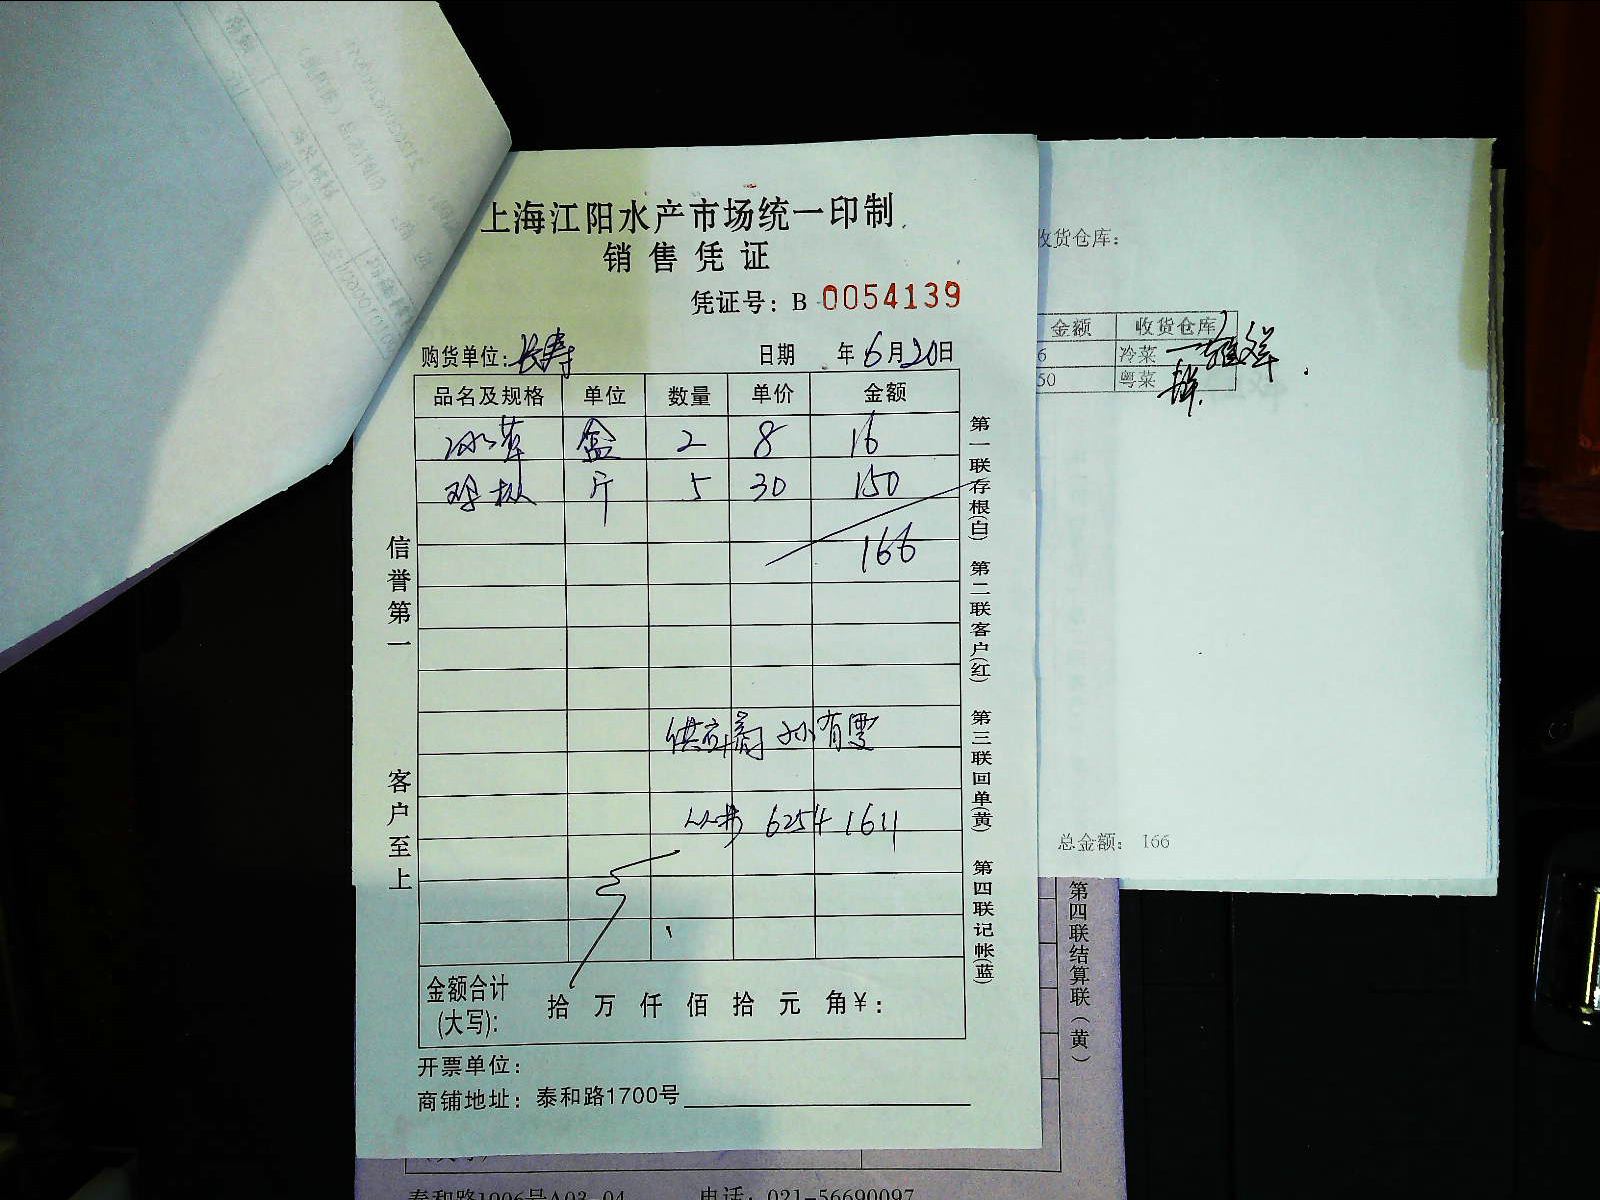 上海江阳水产市场统一印制
销售凭证
凭证号：B 0054139
购货单位：长寿 日期 年6月20日
品名及规格 单位 数量 单价 金额
冰草 盒 2 8 16
斤 5 30 150
166
供应商 孙有雯
6254 1611
金额合计
(大写)： 拾 万 仟 佰 拾 元 角 ￥：
开票单位：
商铺地址：泰和路1700号
信誉第一
客户至上
第一联存根(白)
第二联客户(红)
第三联回单(黄)
第四联记帐(蓝)
收货仓库：
金额 收货仓库
6 冷菜
50 粤菜
总金额： 166
第四联结算联（黄）
泰和路1906号A03-04 电话：021-56690097